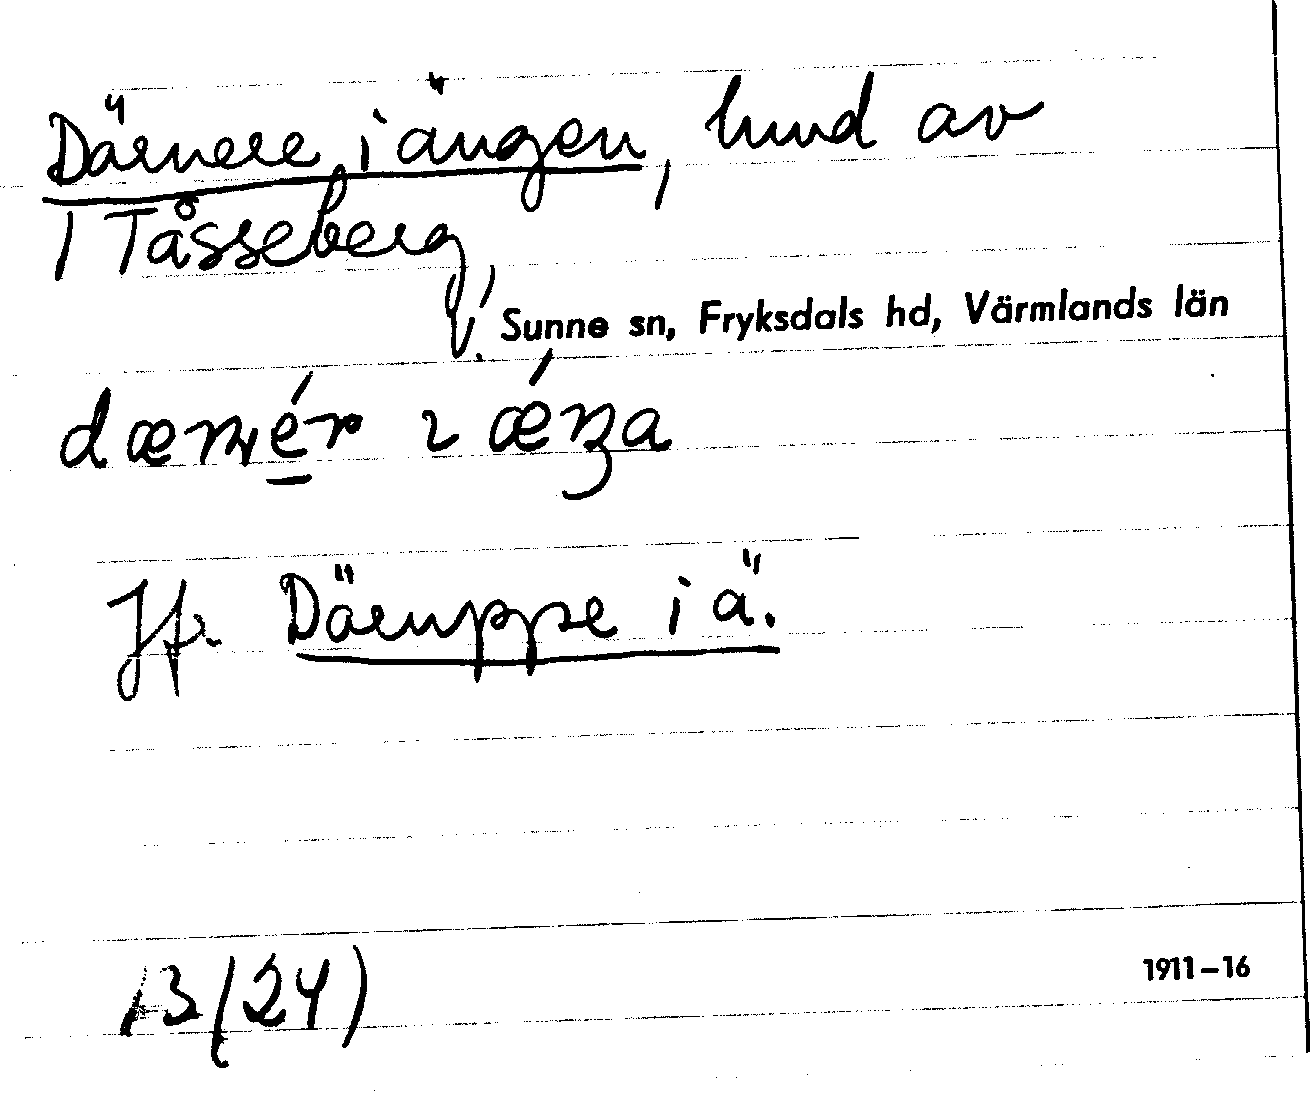 Därnere i ängen, hmd av
1 Tåsseberg,
Sunne sn, Fryksdals hd, Värmlands län
dænér ɩ ǽŋa
Jfr. Däruppe i ä.
13 (24)
1911–16